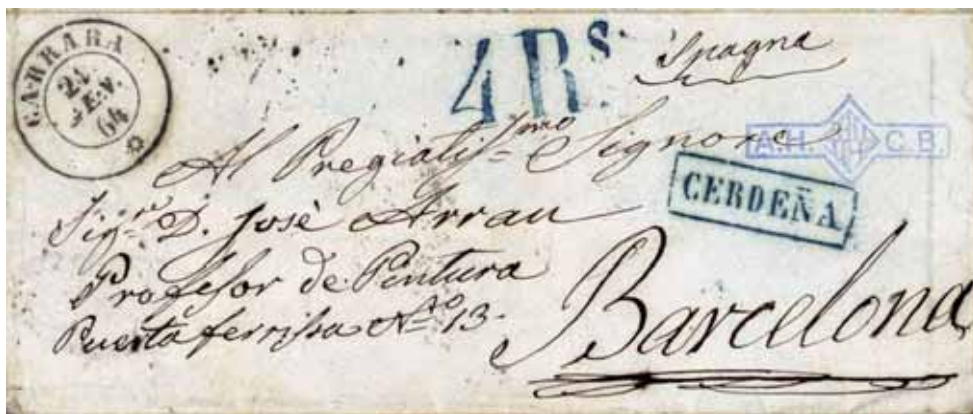 CARRARA
21
FEV.
64
4 Rs.
Spagna
A.H. C.B.
CERDEÑA
Al Pregiatissmo Signore
Sigre D. Josè Arrau
Profesor de Pintura
Puerta ferrissa No 13.
Barcelona